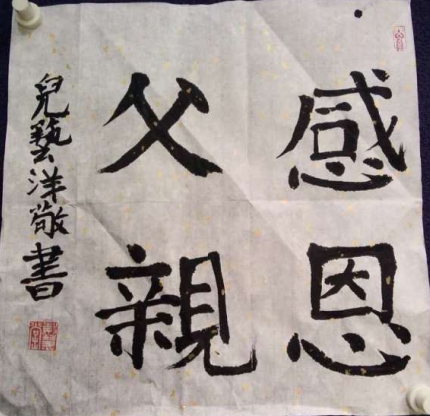 感恩
父親
兒藝洋敬書